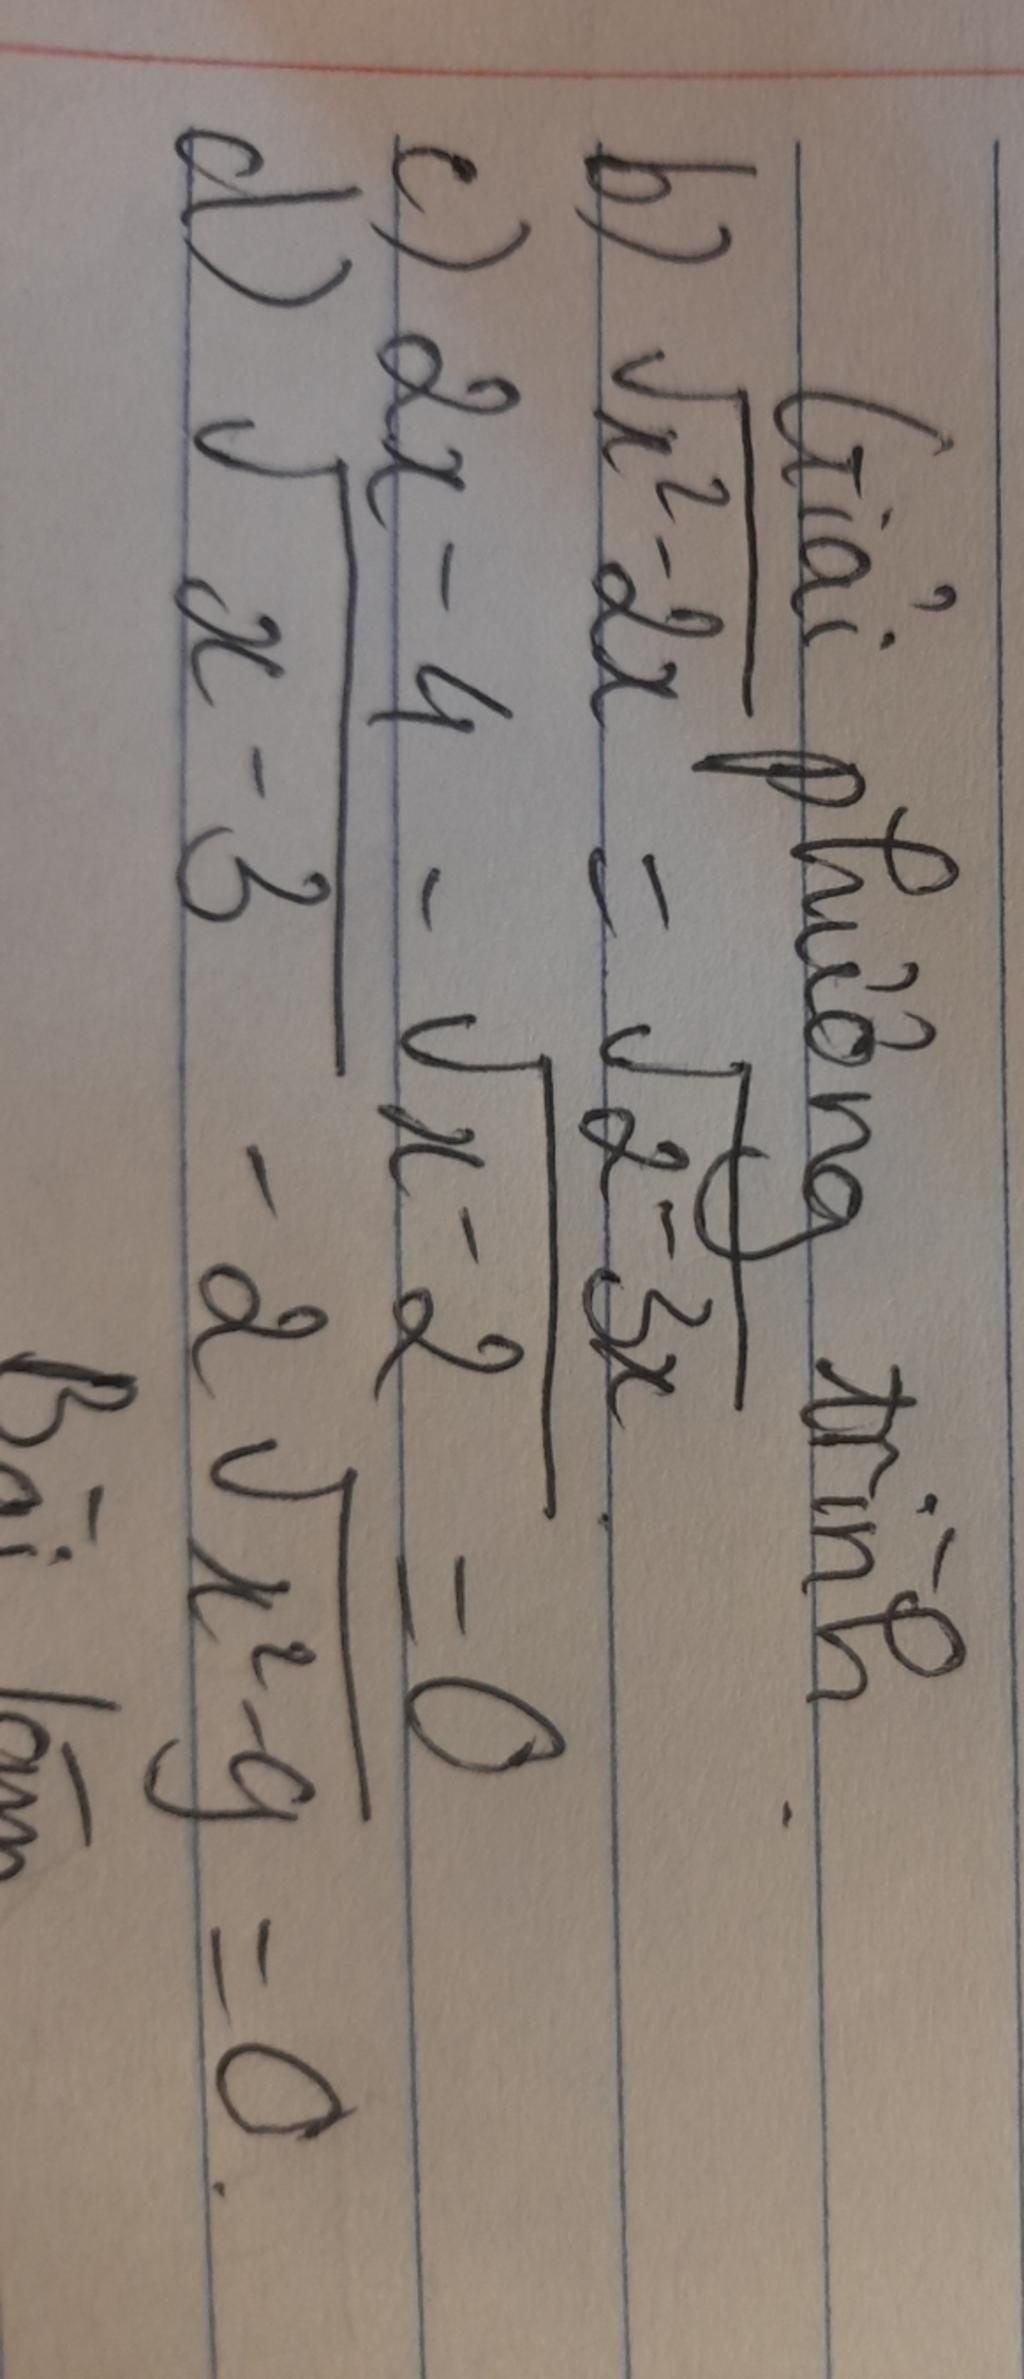 Giải phương trình
b) √x²-2x = √2-3x
c) 2x - 4 - √x-2 = 0
d) √x-3 - 2√x²-9 = 0.
Bài làm